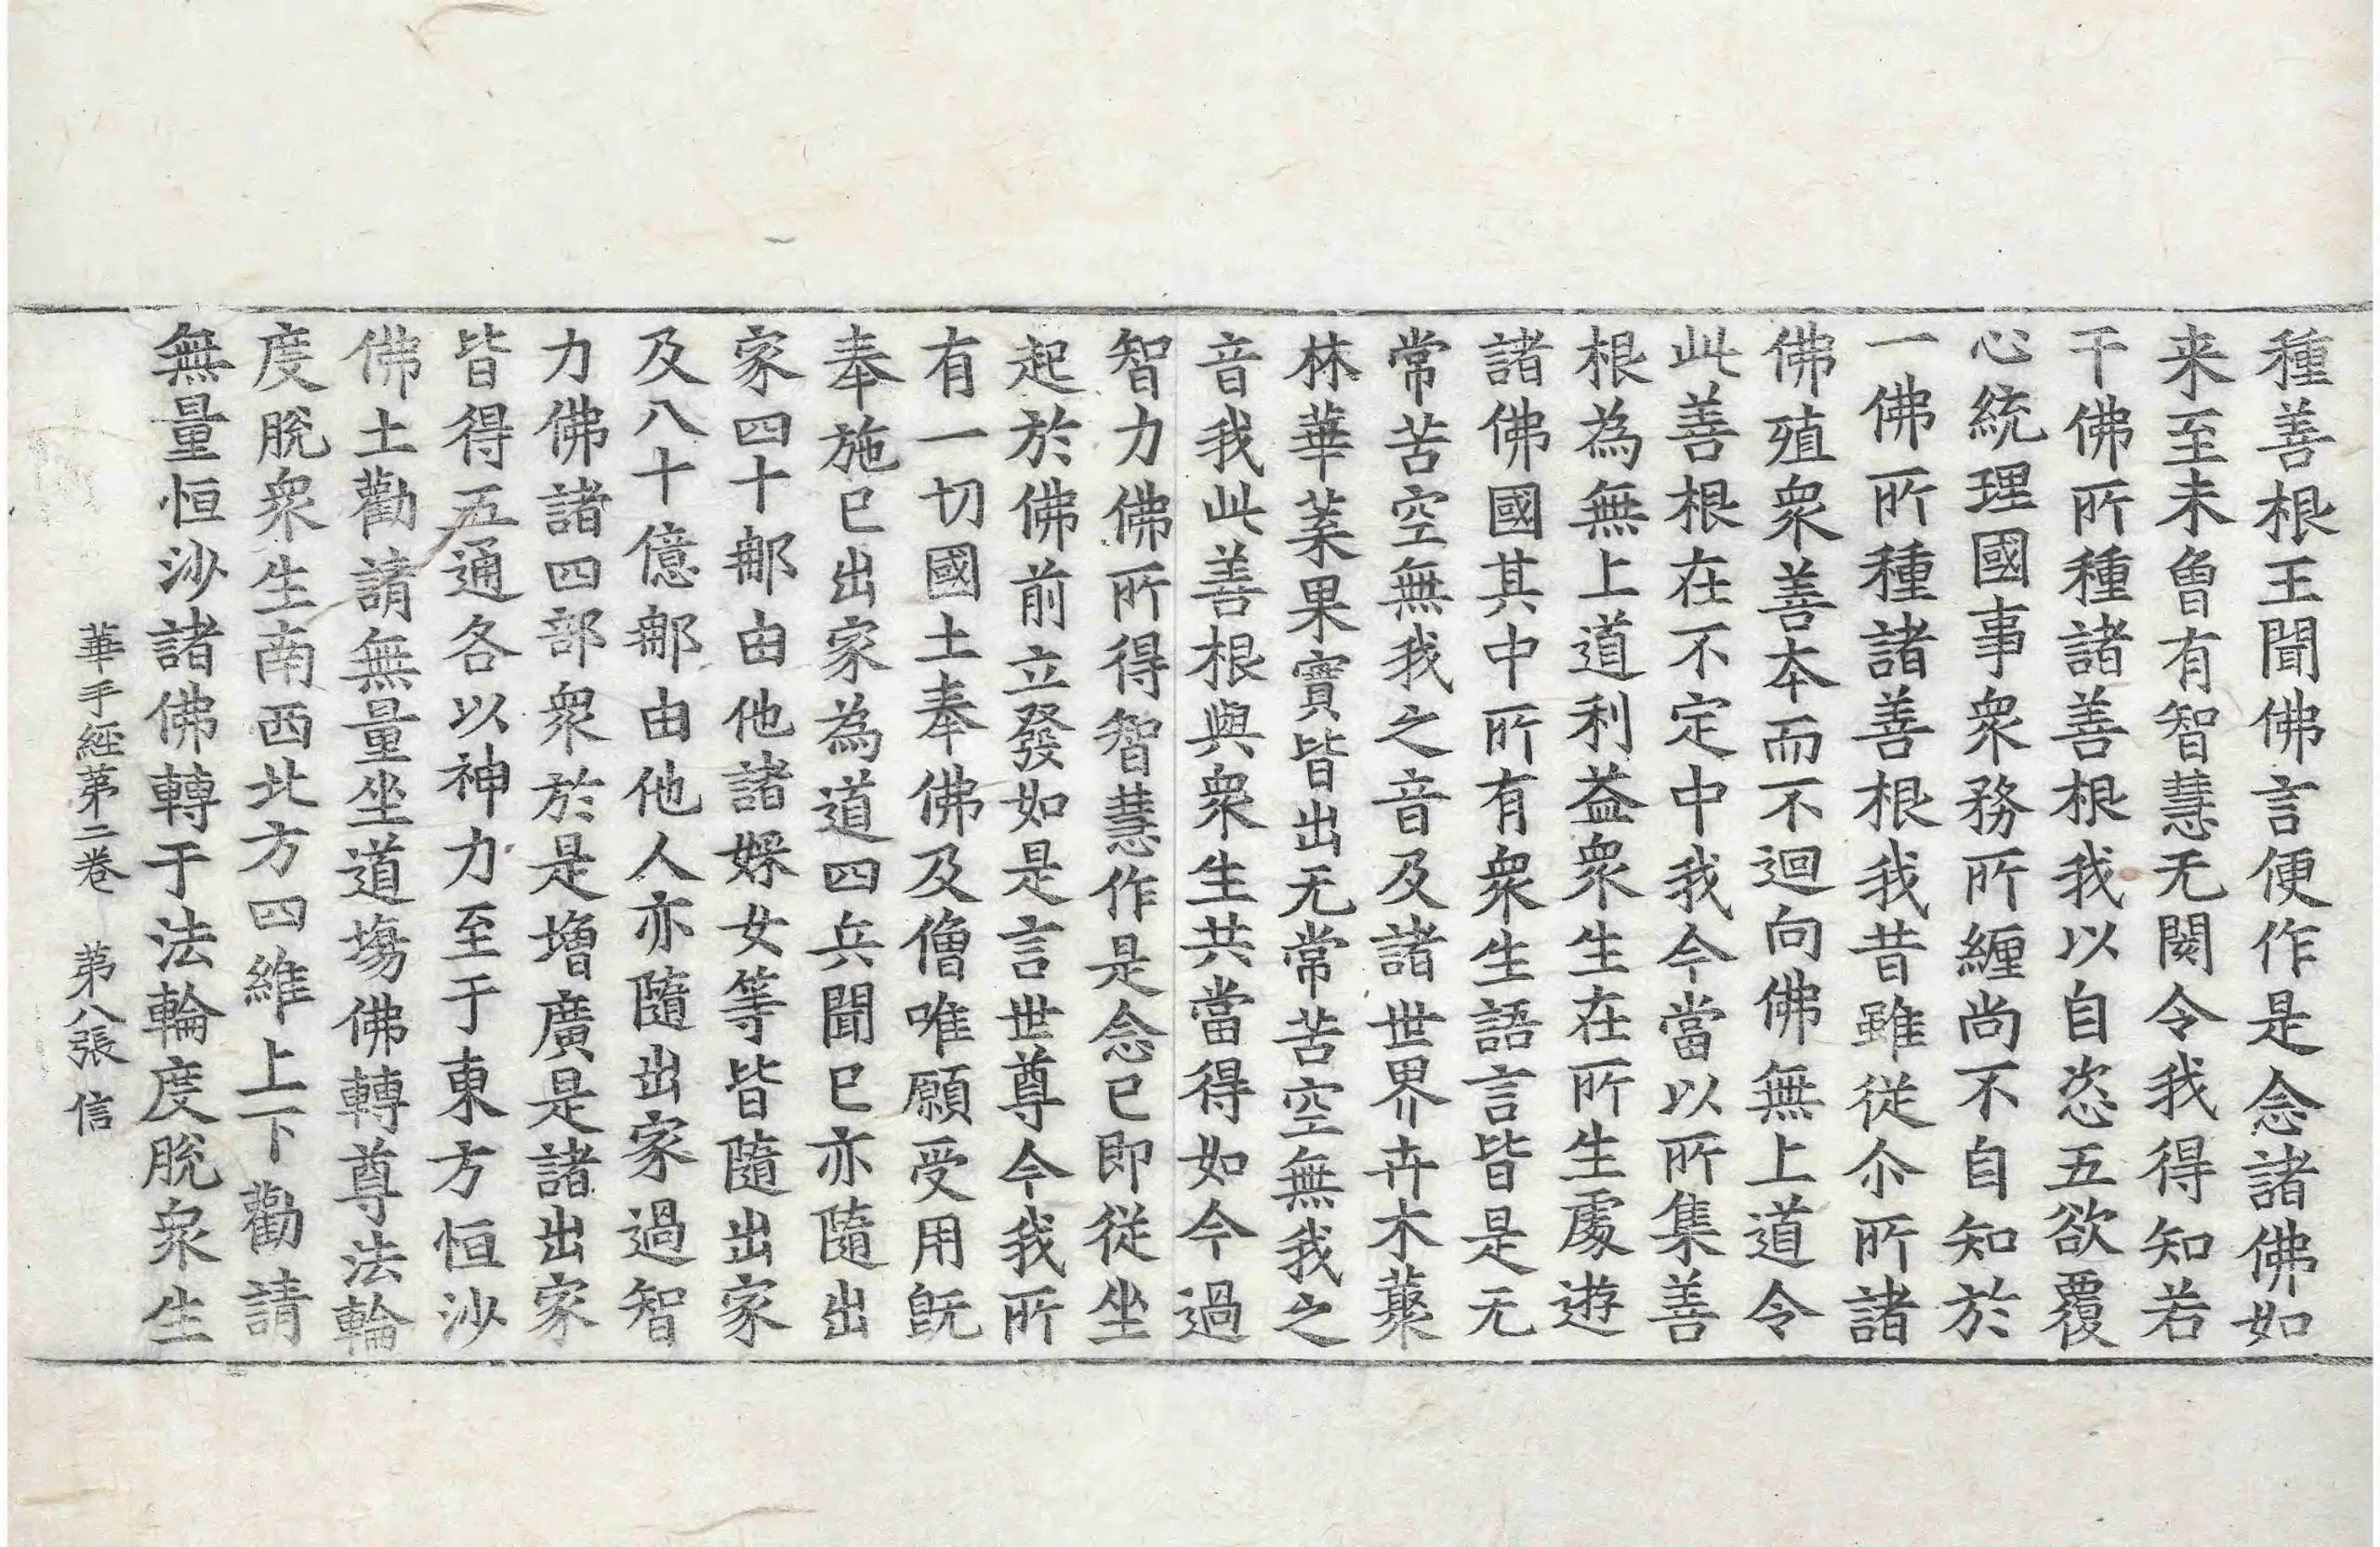 種善根王聞佛言便作是念諸佛如
来至未曾有智慧无閡令我得知若
干佛所種諸善根我以自恣五欲覆
心統理國事衆務所纏尚不自知於
一佛所種諸善根我昔雖從尒所諸
佛殖衆善本而不迴向佛無上道令
此善根在不定中我今當以所集善
根為無上道利益衆生在所生處遊
諸佛國其中所有衆生語言皆是无
常苦空無我之音及諸世界卉木藂
林華菓果實皆出无常苦空無我之
音我此善根與衆生共當得如今過
智力佛所得智慧作是念已即從坐
起於佛前立發如是言世尊今我所
有一切國土奉佛及僧唯願受用旣
奉施已出家為道四兵聞已亦隨出
家四十郍由他諸婇女等皆隨出家
及八十億郍由他人亦隨出家過智
力佛諸四部衆於是增廣是諸出家
皆得五通各以神力至于東方恒沙
佛土勸請無量坐道場佛轉尊法輪
度脫衆生南西北方四維上下勸請
無量恒沙諸佛轉于法輪度脫衆生
華手經第二卷 第八張 信